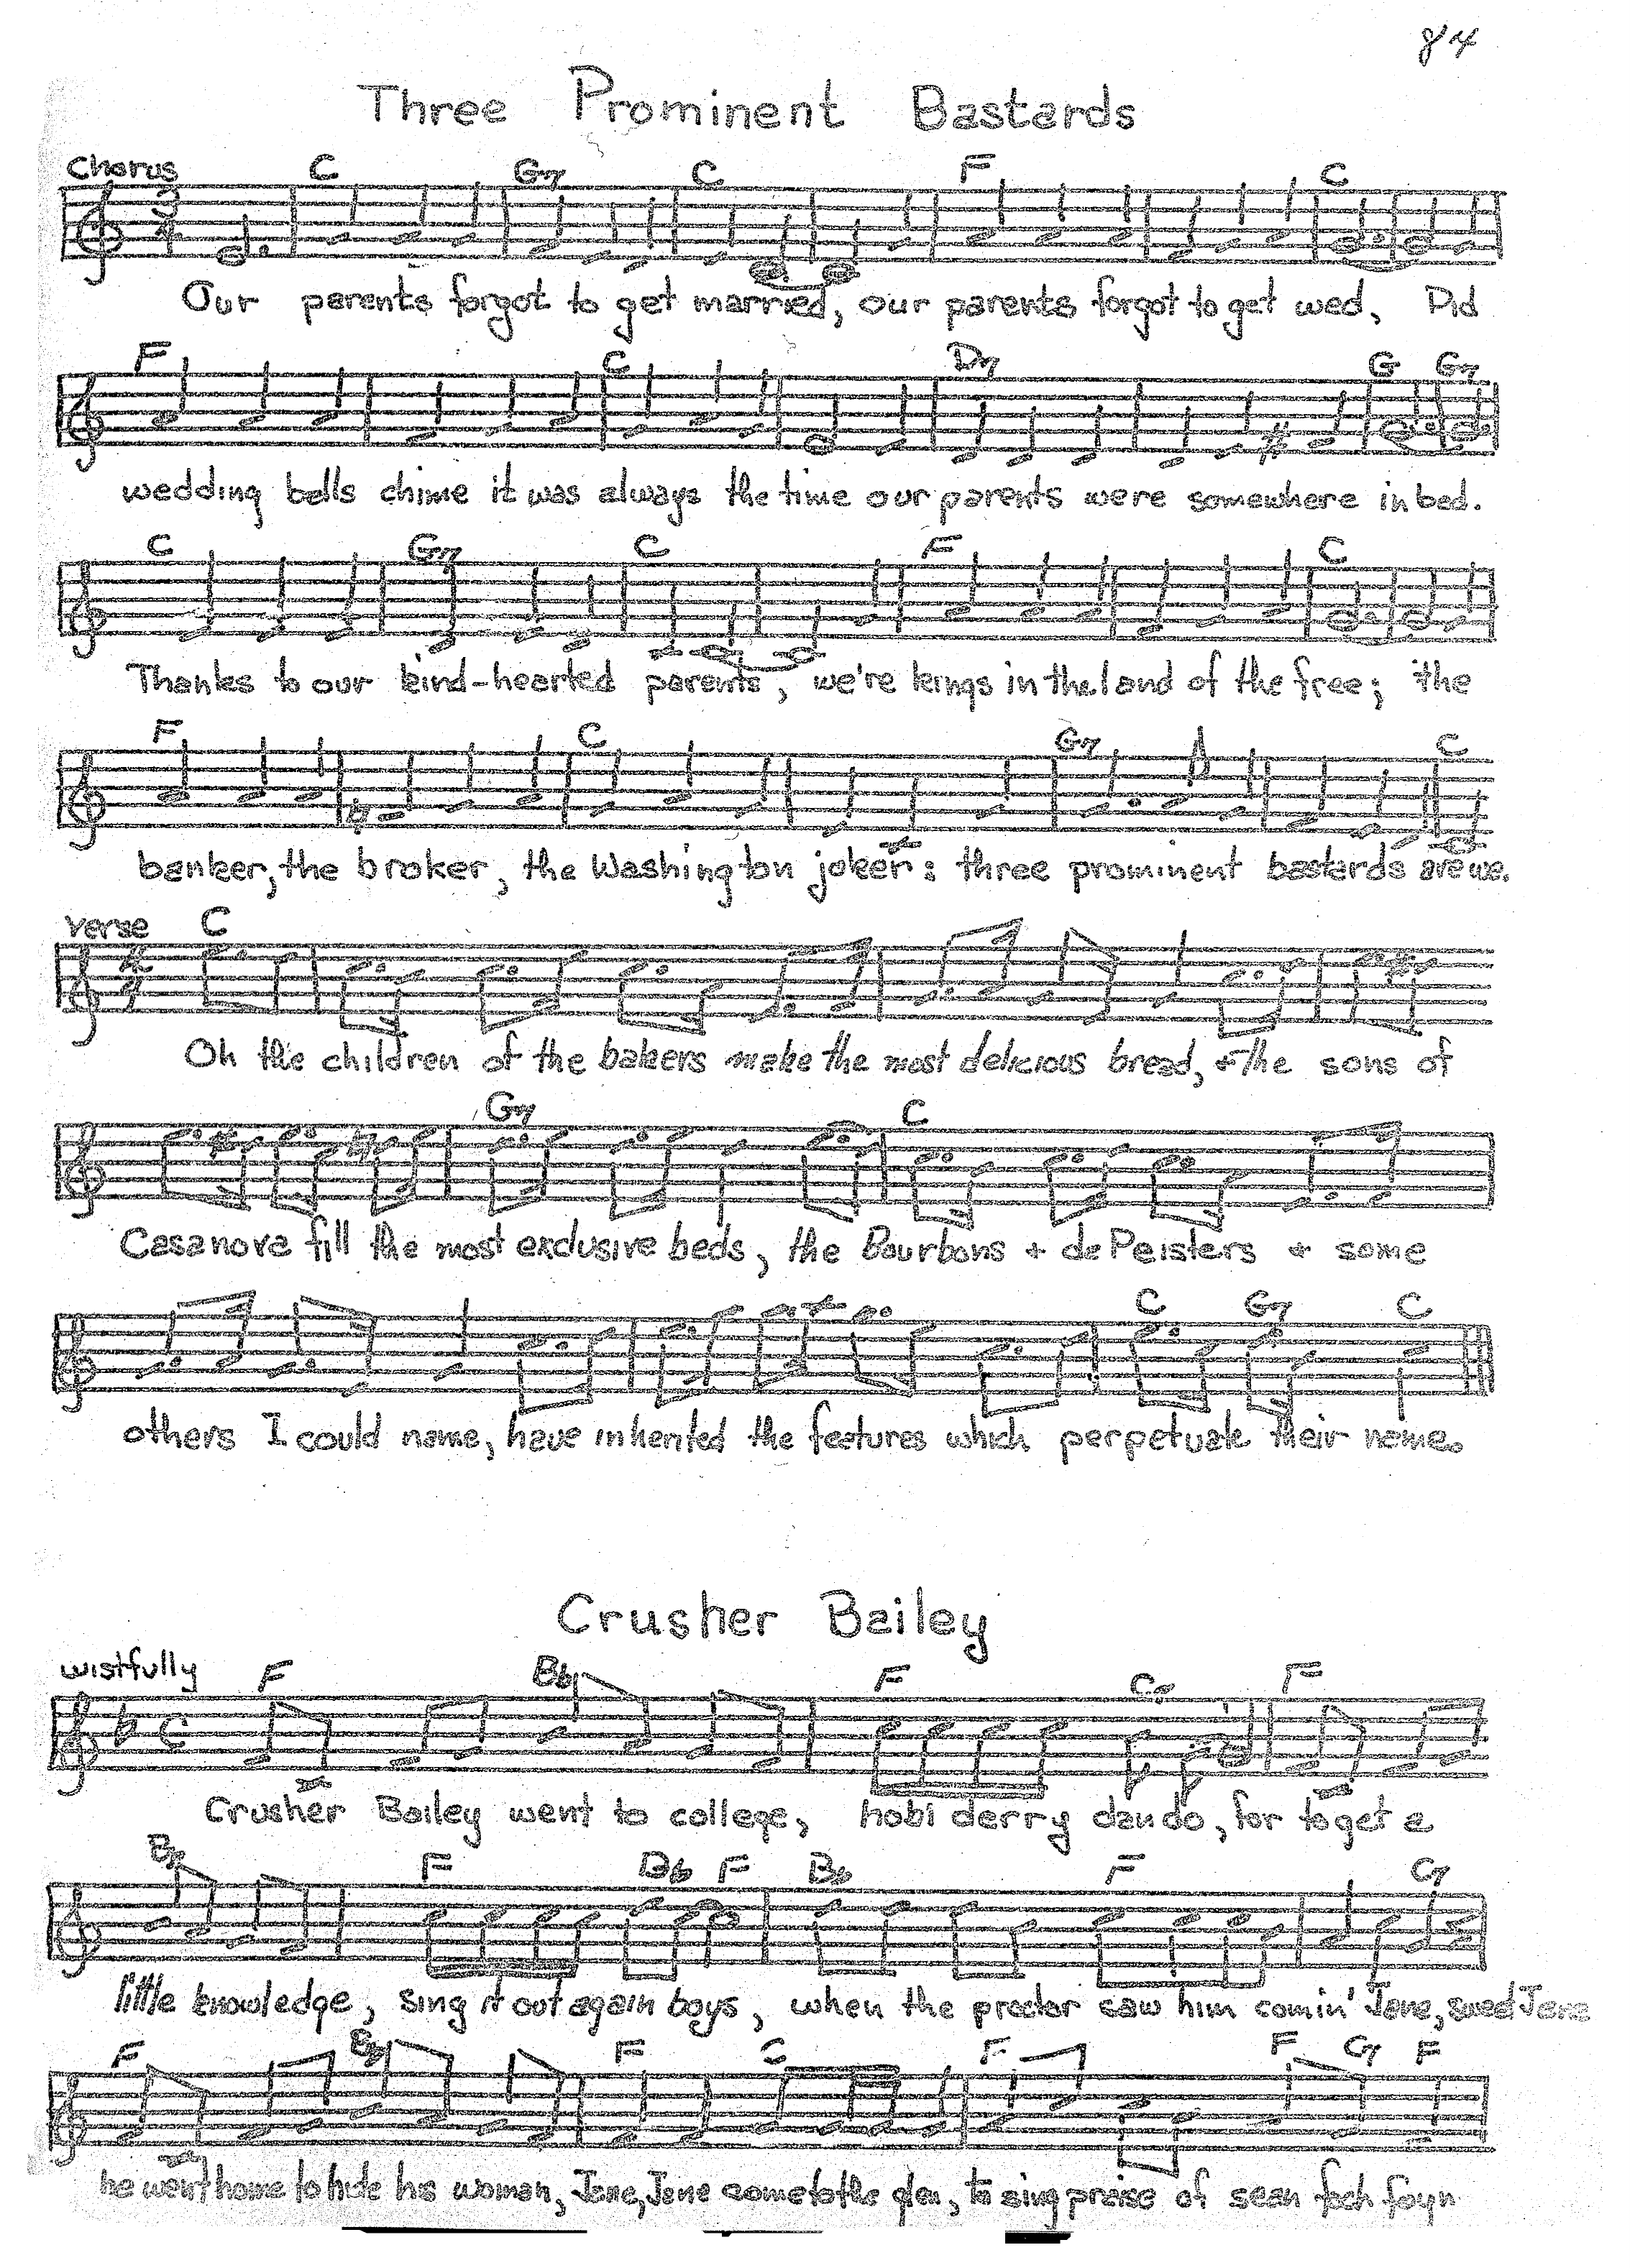 84
Three Prominent Bastards
Chorus C G7 C F C
Our parents forgot to get married, our parents forgot to get wed, Did
F C D7 G G7
wedding bells chime it was always the time our parents were somewhere in bed.
C G7 C F C
Thanks to our kind-hearted parents, we're kings in the land of the free; the
F C G7 C
banker, the broker, the Washington joker: three prominent bastards are we.
Verse C
Oh the children of the bakers make the most delicious bread, + the sons of
G7 C
Casanova fill the most exclusive beds, the Bourbons + de Peisters + some
C G7 C
others I could name, have inherited the features which perpetuate their name.
Crusher Bailey
wistfully F Bb F C7 F
Crusher Bailey went to college, hobi derry dan do, for to get a
Bb F Bb F Bb F C7
little knowledge, sing it out again boys, when the proctor saw him comin' Jane, sweet Jane
F Bb F C F F C7 F
he went home to hide his woman, Jane, Jane come to the glen, to sing praise of sean foch foyn